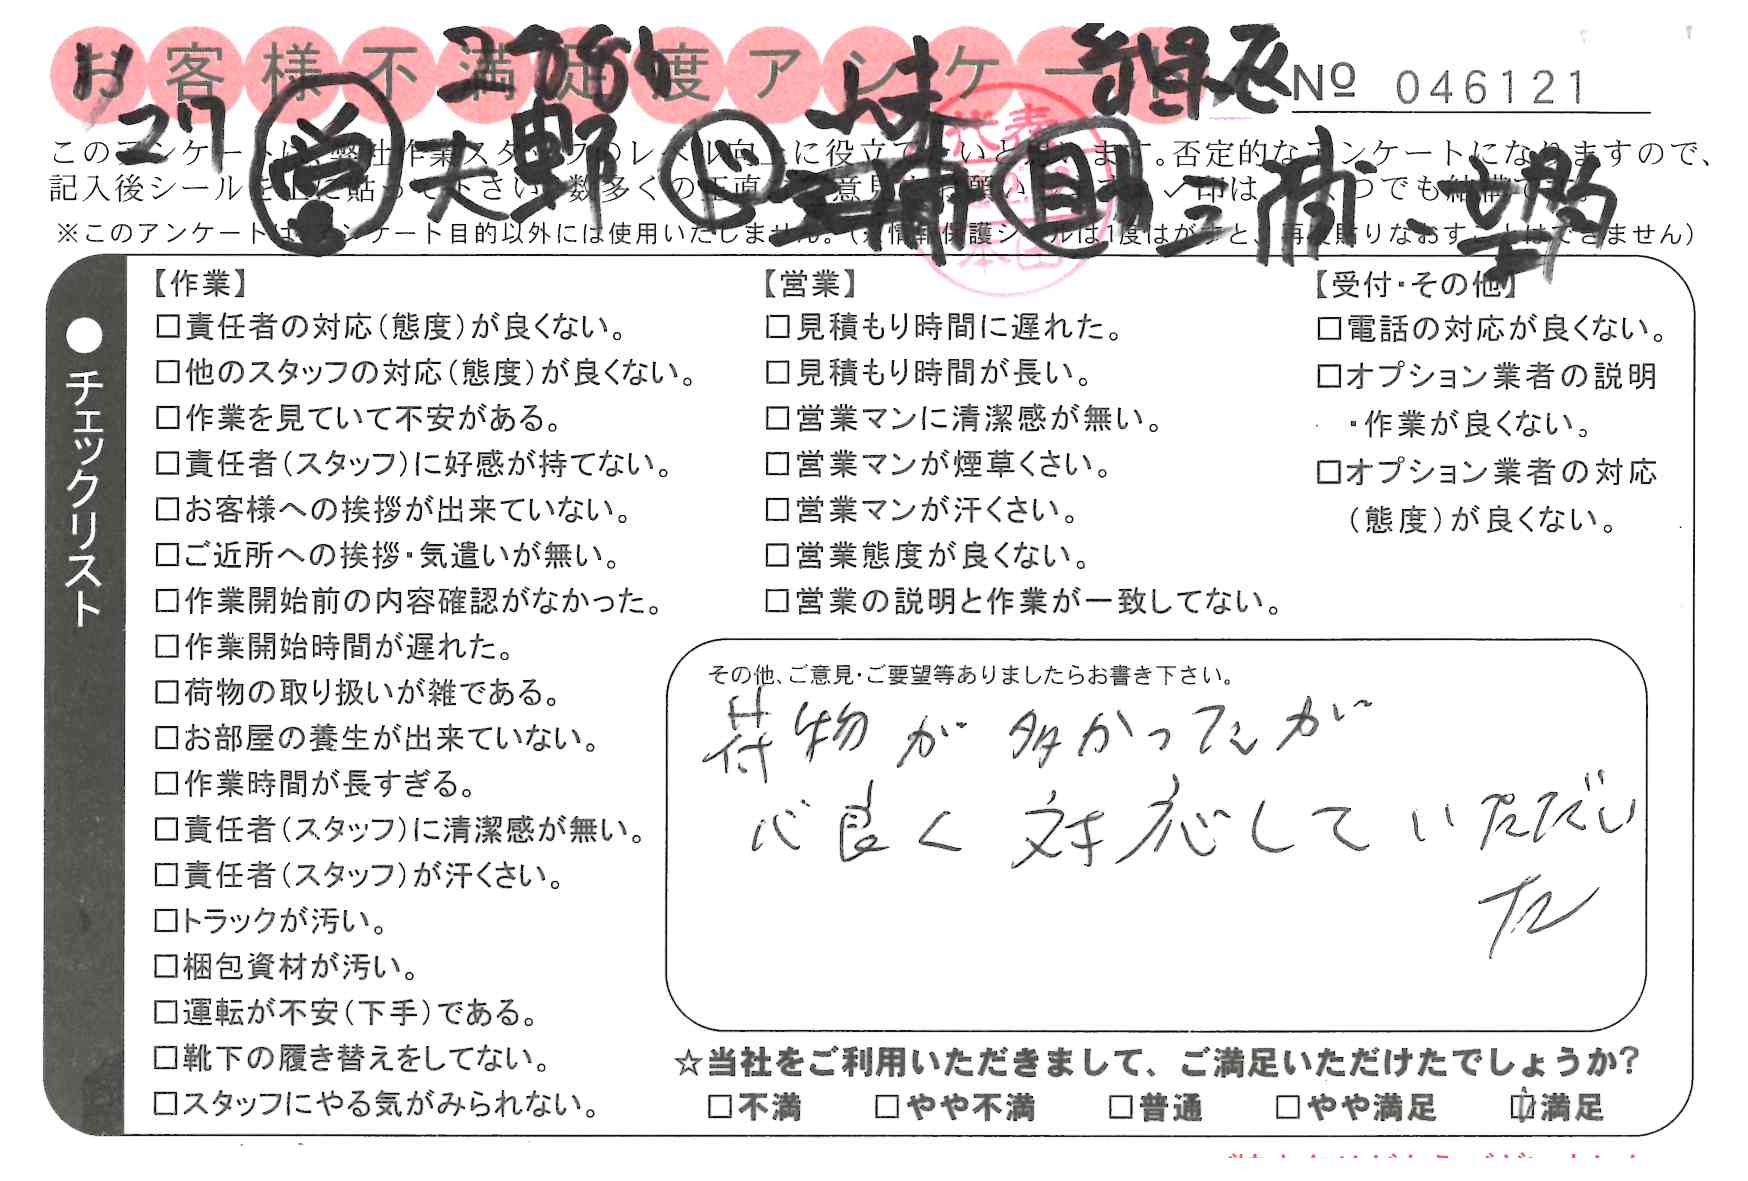 お客様不満足度アンケート
No 046121
11
27
営 天野
三浦
三浦
このアンケートは、弊社作業スタッフのレベル向上に役立てたいと思います。否定的なアンケートになりますので、
記入後シールを上に貼って下さい。数多くの正直なご意見をお願いします。✓印は、いくつでも結構です。
※このアンケートはアンケート目的以外には使用いたしません。(※情報保護シールは1度はがすと、再度貼りなおすことはできません)
●チェックリスト
【作業】
□責任者の対応(態度)が良くない。
□他のスタッフの対応(態度)が良くない。
□作業を見ていて不安がある。
□責任者(スタッフ)に好感が持てない。
□お客様への挨拶が出来ていない。
□ご近所への挨拶・気遣いが無い。
□作業開始前の内容確認がなかった。
□作業開始時間が遅れた。
□荷物の取り扱いが雑である。
□お部屋の養生が出来ていない。
□作業時間が長すぎる。
□責任者(スタッフ)に清潔感が無い。
□責任者(スタッフ)が汗くさい。
□トラックが汚い。
□梱包資材が汚い。
□運転が不安(下手)である。
□靴下の履き替えをしてない。
□スタッフにやる気がみられない。
【営業】
□見積もり時間に遅れた。
□見積もり時間が長い。
□営業マンに清潔感が無い。
□営業マンが煙草くさい。
□営業マンが汗くさい。
□営業態度が良くない。
□営業の説明と作業が一致してない。
【受付・その他】
□電話の対応が良くない。
□オプション業者の説明
・作業が良くない。
□オプション業者の対応
(態度)が良くない。
その他、ご意見・ご要望等ありましたらお書き下さい。
荷物が多かったが
心良く対応していただい
た
☆当社をご利用いただきまして、ご満足いただけたでしょうか?
□不満 □やや不満 □普通 □やや満足 ☑満足